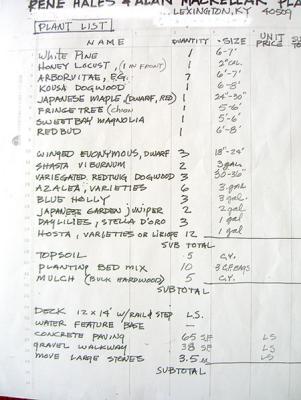 RENE HALES & ALAN MACKELLAR PLA
LEXINGTON, KY 40509
PLANT LIST
NAME QUANTITY SIZE UNIT PRICE
WHITE PINE 1 6-7'
HONEY LOCUST, (1 IN FRONT) 1 2" CAL.
ARBORVITAE, E.G. 7 6'-7'
KOUSA DOGWOOD 1 6'-8'
JAPANESE MAPLE (DWARF, RED) 1 24"-30"
FRINGE TREE (Chion 1 5-6'
SWEETBAY MAGNOLIA 1 5'-6'
REDBUD 1 6'-8'
WINGED EUONYMOUS, DWARF 3 18"-24"
SHASTA VIBURNUM 2 3 gal.
VARIEGATED REDTWIG DOGWOOD 3 30-36"
AZALEA, VARIETIES 6 3 gal.
BLUE HOLLY 3 3 gal.
JAPANESE GARDEN JUNIPER 2 2 gal
DAYLILIES, STELLA D'ORO 3 1 gal
HOSTA, VARIETIES OR LIRIOPE 12 1 gal
SUB TOTAL
TOPSOIL 5 C.Y.
PLANTING BED MIX 10 3 C.F. BAGS
MULCH (BULK HARDWOOD) 5 C.Y.
SUBTOTAL
DECK 12 X 14' W/RAIL & STEP L.S.
WATER FEATURE BASE —
CONCRETE PAVING 65 SF LS
GRAVEL WALKWAY 38 SF LS
MOVE LARGE STONES 3.5 LS
SUBTOTAL